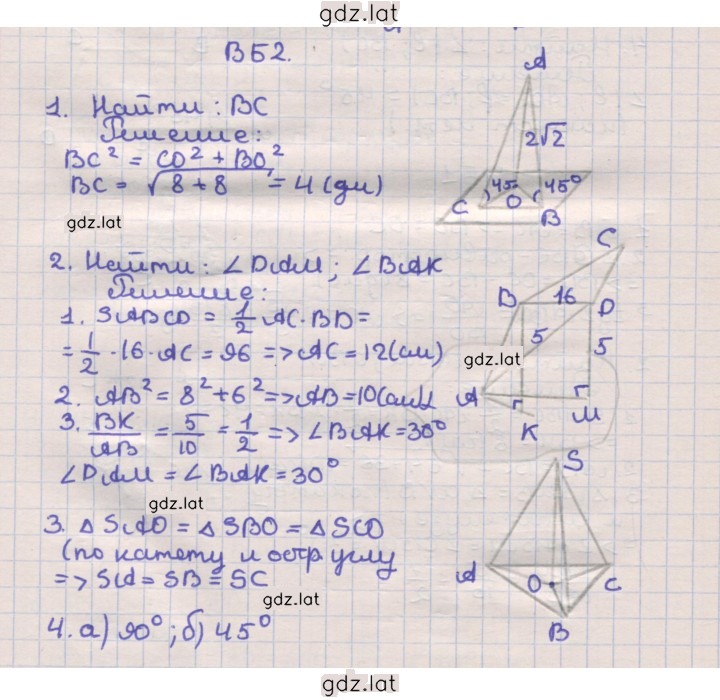 gdz.lat
ВБ2.
1. Найти: BC
Решение:
BC² = CO² + BO²
BC = √8+8 = 4 (дм)
gdz.lat
A
2√2
45
45°
C
O
B
2. Найти: ∠DAM; ∠BAK
Решение:
1. SABCD = 1/2 AC·BD=
= 1/2 ·16·AC = 96 => AC = 12(см)
2. AB² = 8² + 6² => AB = 10(см)
3. BK/AB = 5/10 = 1/2 => ∠BAK = 30°
∠DAM = ∠BAK = 30°
gdz.lat
C
B
16
D
5
5
gdz.lat
A
M
K
3. △ SAO = △ SBO = △ SCO
(по катету и остр углу
=> SA = SB = SC
gdz.lat
S
A
O
C
B
4. а) 90°; б) 45°
gdz.lat